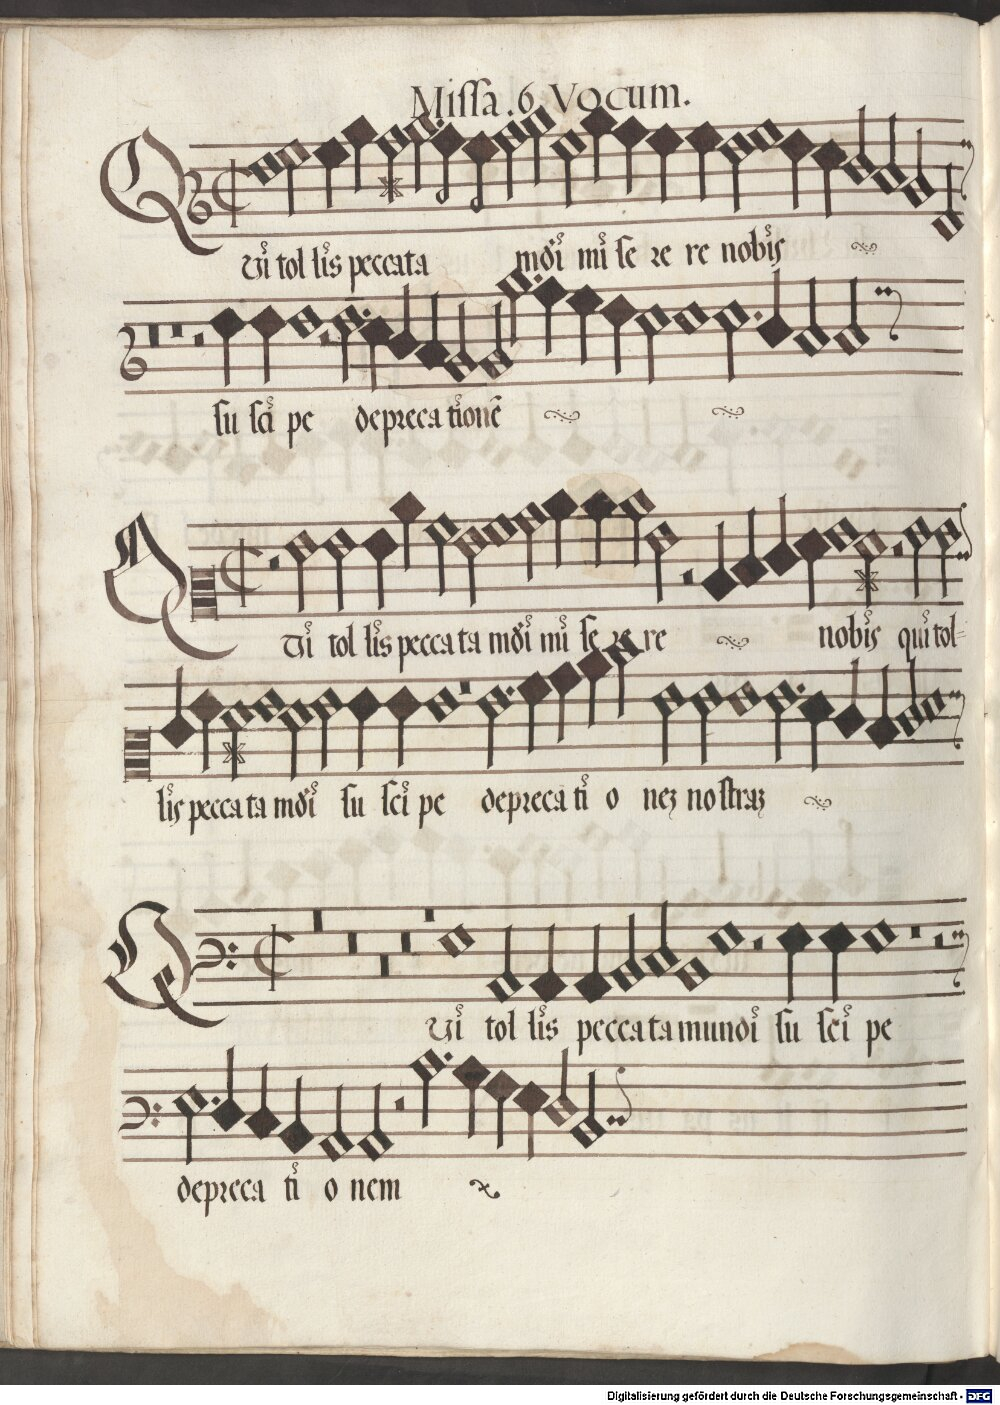 Missa .6. Vocum.
Qui tol lis peccata mūdi mi se re re nobis
su sci pe depreca tionē
Qui tol lis pecca ta mūdi mi se re re nobis qui tol-
lis pecca ta mūdi su sci pe depreca ti o nez nostraz
Qui tol lis pecca ta mundi su sci pe
depreca ti o nem
Digitalisierung gefördert durch die Deutsche Forschungsgemeinschaft - DFG